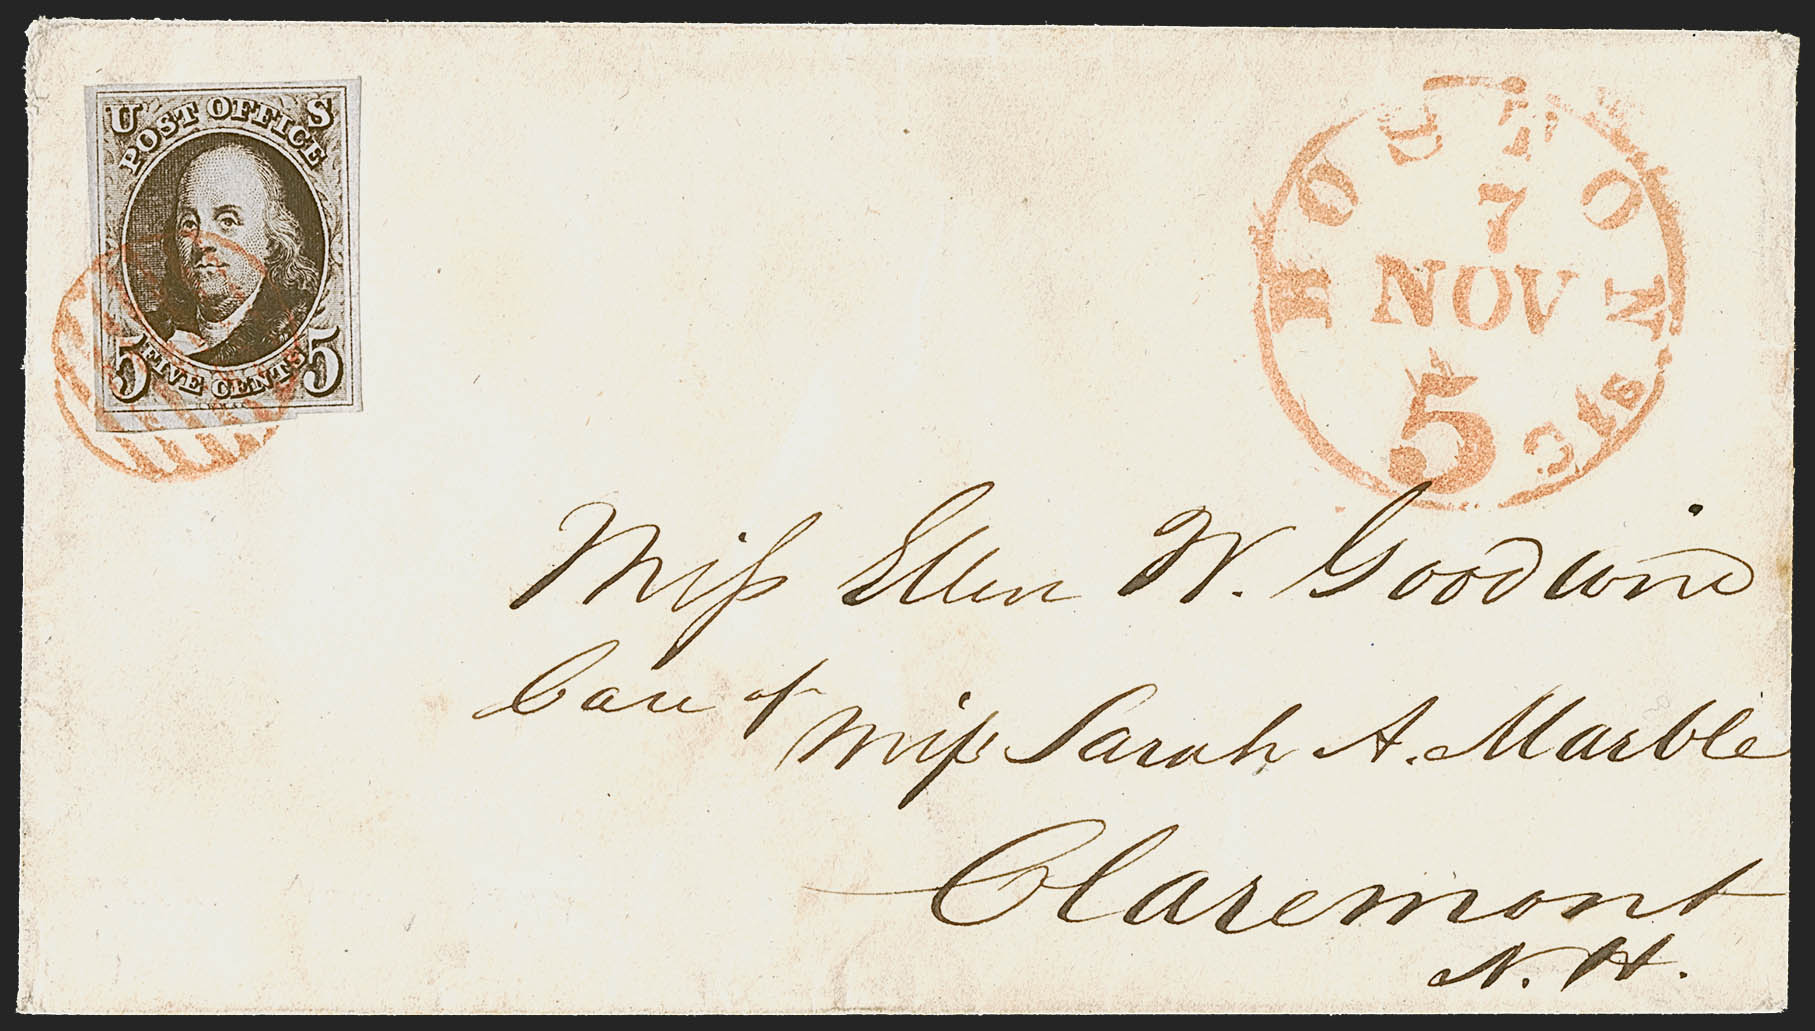 U S
POST OFFICE
5 FIVE CENTS 5
BOSTON
7
NOV
5 cts
Miſs Ellen W. Goodwin
Care of
Miſs Sarah A. Marble
Claremont
N. H.